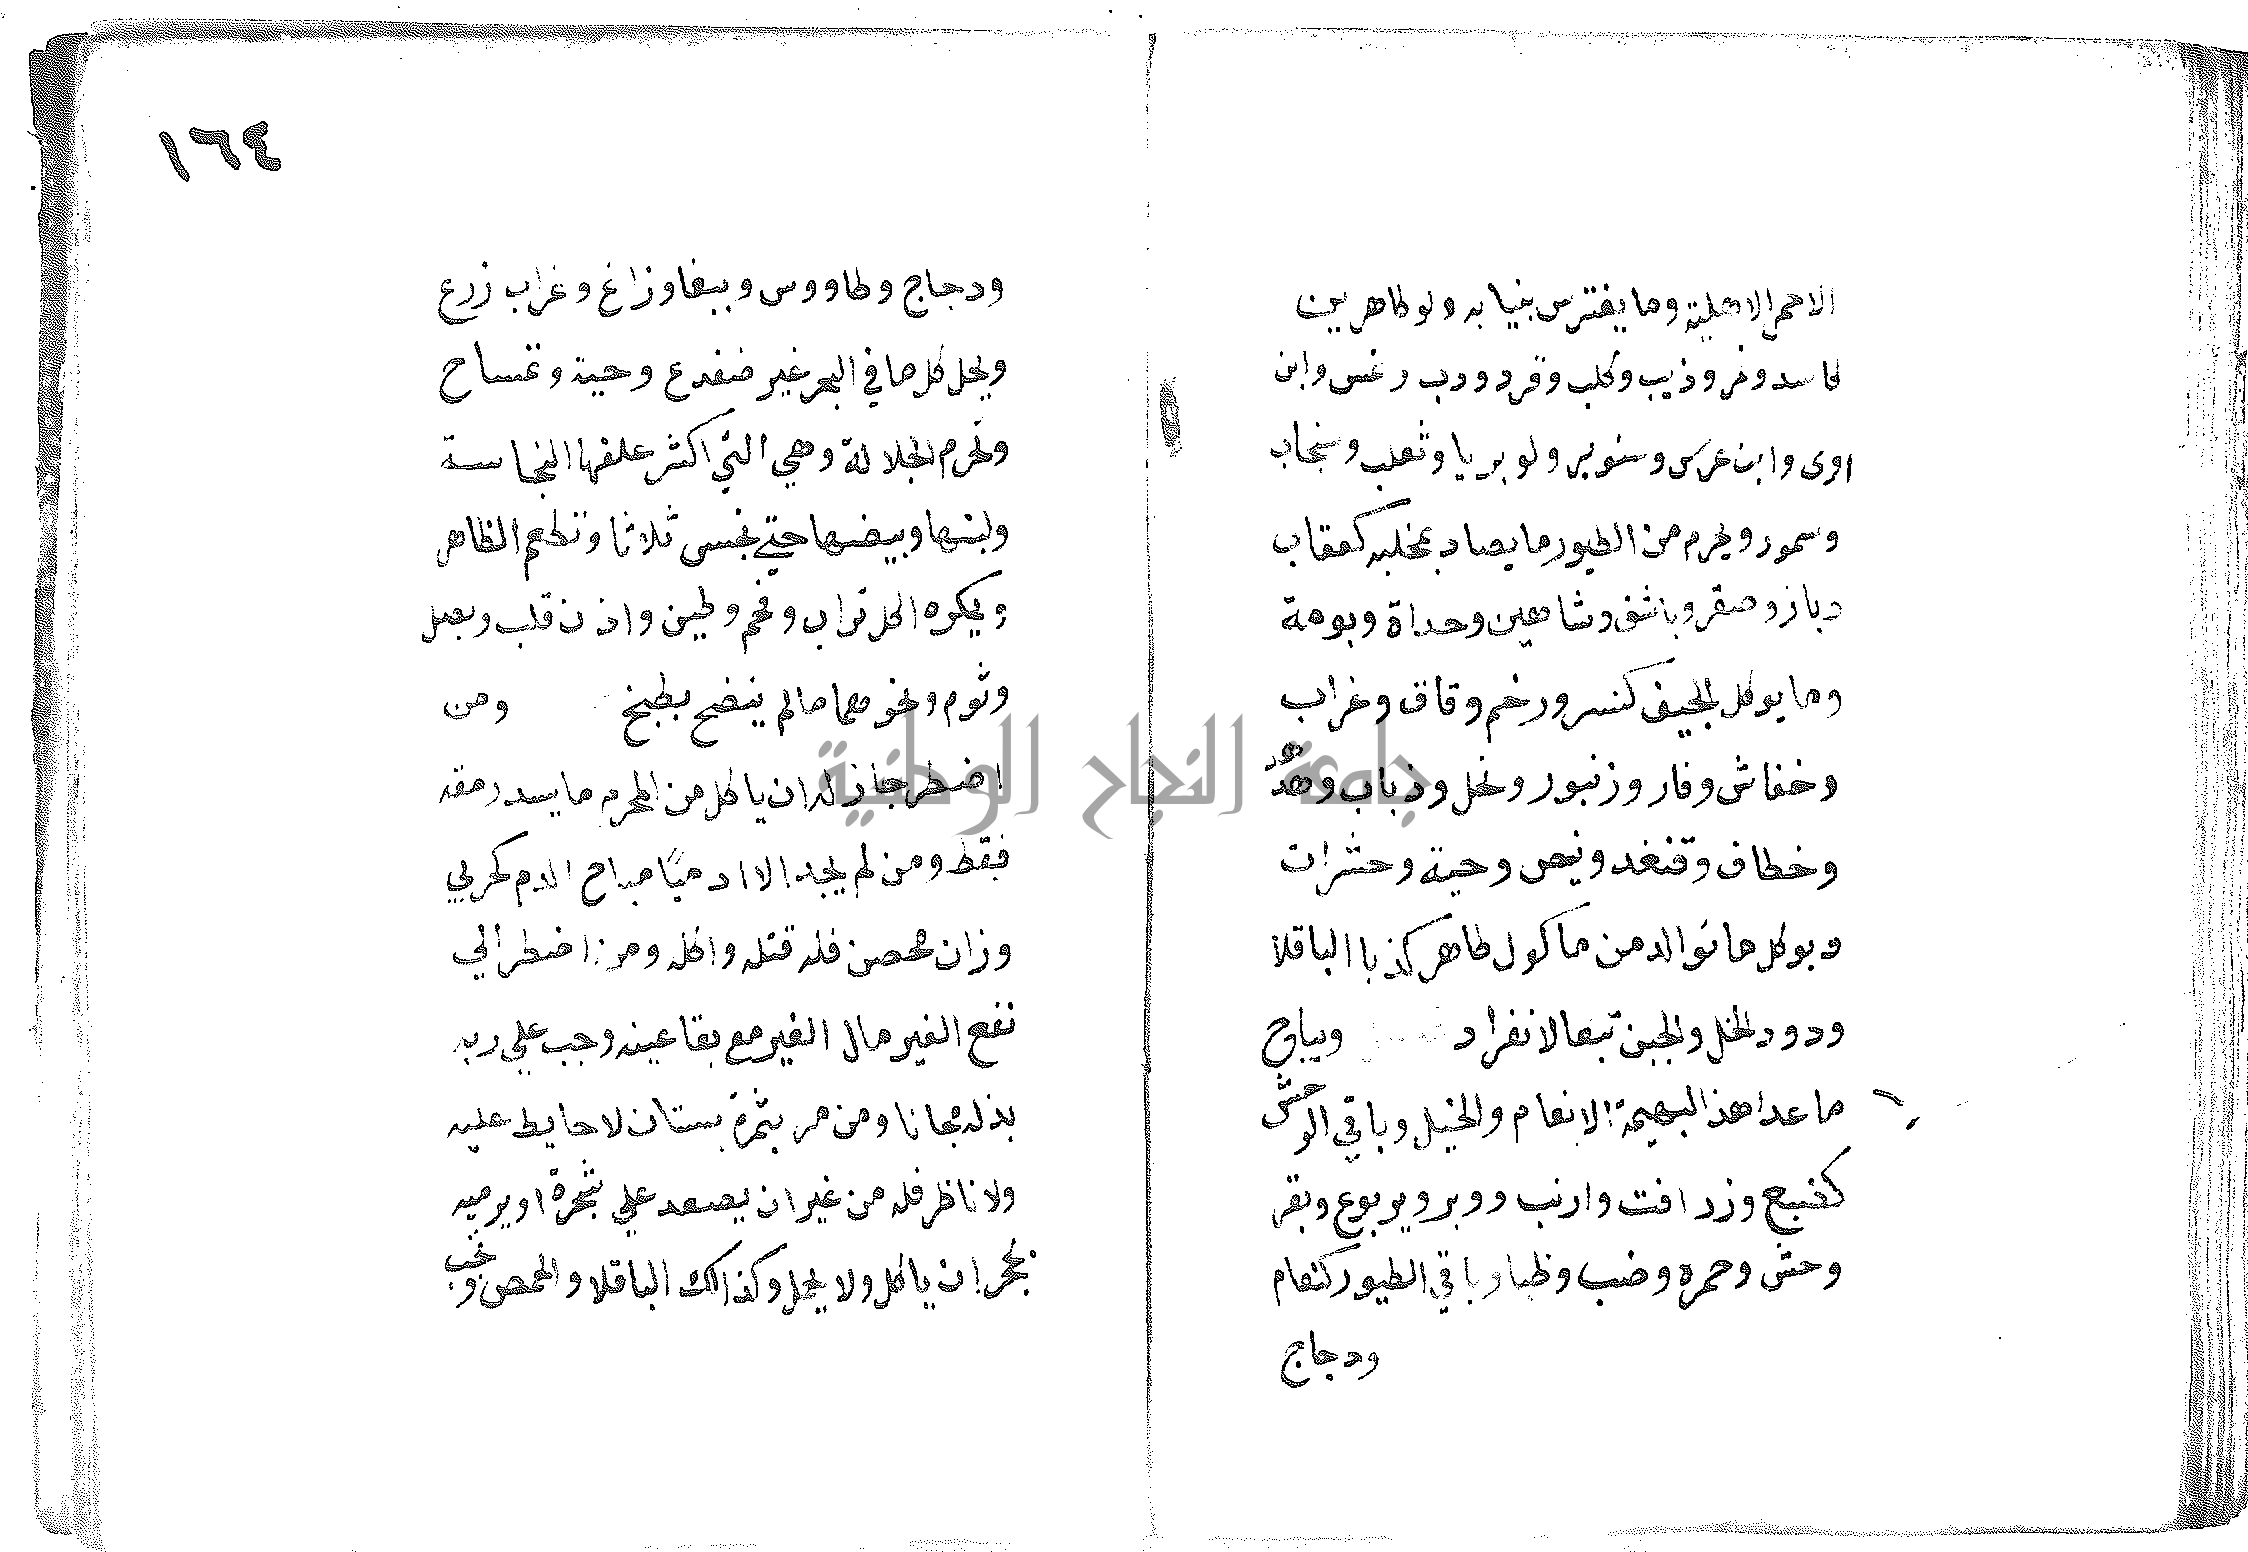 الاحمر الاهلية وما يفترس بنيابه ولو طاهرين
كاسد ونمر وذيب وكلب وقرد ودب ونمس وابن
اوى وابن عرس وسنور ولو بريا وثعلب وسنجاب
وسمور ويحرم من الطيور ما يصاد بمخلبه كعقاب
وباز وصقر وباشق وشاهين وحداة وبومة
وما يوكل الجيف كنسر ورخم وقاق وغراب
وخفاش وفار وزنبور ونحل وذباب وهدهد
وخطاف وقنفد ونيص وحية وحشرات
ويوكل ما توالد من ماكول طاهر كذباب الباقلا
ودود الخل والجبن تبعا لا انفراد ويباح
ما عدا هذا البهيمة الانعام والخيل وباقي الوحش
كضبع وزرافت وارنب ووبر ويربوع وبقر
وحش وحمره وضب وظبا وباقي الطيور كنعام
ودجاج
١٦٤
ودجاج وطاووس وببغا وزاغ وغراب زرع
ويحل كل ما في البحر غير ضفدع وحية وتمساح
وتحرم الجلالة وهي التي اكثر علفها النجاسة
ولبنها وبيضها حتي تحبس ثلاثا وتطعم الطاهر
ويكره اكل تراب وفحم وطين واذن قلب وبصل
وثوم ونحوهما مالم ينضج بطبخ ومن
اضطر جاز له ان ياكل من المحرم ما يسد رمقه
فقط ومن لم يجد الا ادميا مباح الدم كحربي
وزان محصن فله قتله واكله ومن اضطر الي
نفع الغير مال الغير مع بقا عينه وجب علي ربه
بذله مجانا ومن مر بثمرة بستان لا حايط عليه
ولا ناظر فله من غير ان يصعد علي شجرة او يرميه
بحجر ان ياكل ولا يحمل وكذالك الباقلا والحمص وتجب
جامعة النجاح الوطنية